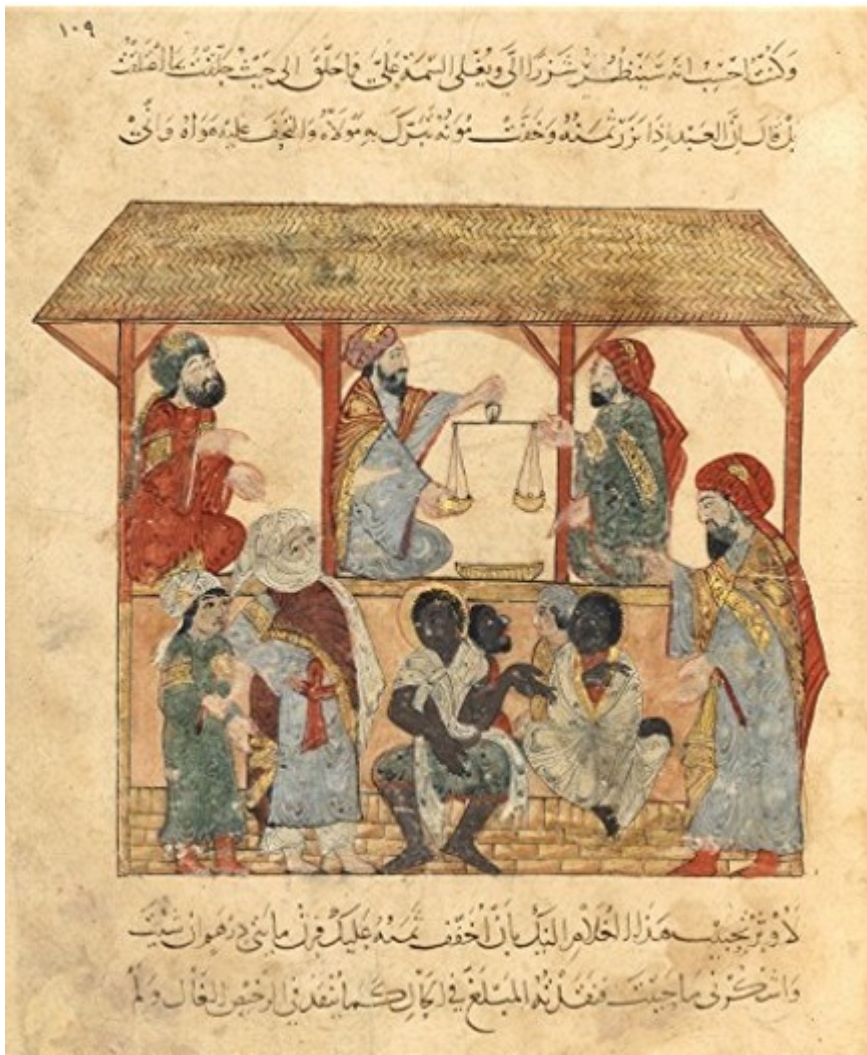 ١٠٩
وكنت احسب انه سينظر شزرا الي ويغلي السيمة علي فما حلق الى حيث حلقت اعتلقت
بل قال ان العبد اذا نزر ثمنه وخفت مونه تبرك به مولاه والتحف عليه هواه واني
لاوثر تحبيب هذا الغلام اليك بان اخفف ثمنه عليك فزن مايتي درهم ان شيت
واشكر لي ما حييت فنقدته المبلغ في الحال كما ينقد في الرخيص الغال ولم